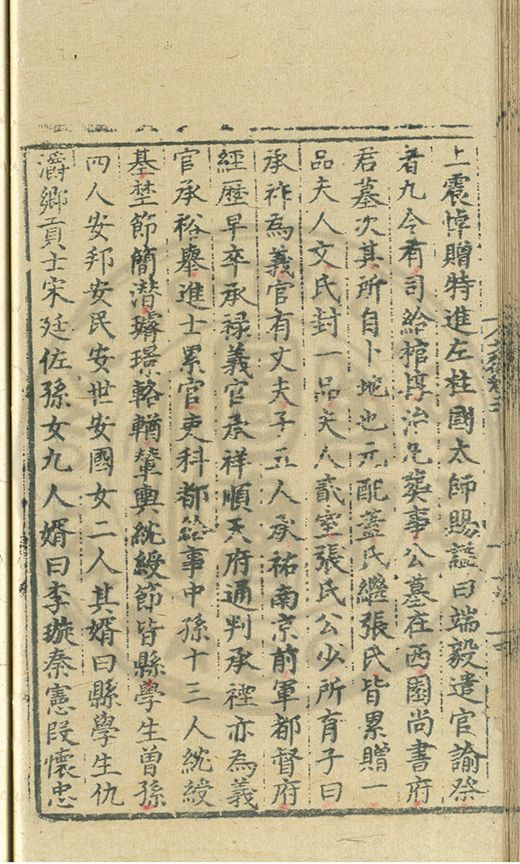 上震悼贈特進左柱國太師賜諡曰端毅遣官諭祭
者九令有司給棺槨治兆葬事公墓在西園尚書府
君墓次其所自卜地也元配蓋氏繼張氏皆累贈一
品夫人文氏封一品夫人貳室張氏公少所育子曰
承祚為義官有丈夫子五人承祐南京前軍都督府
經歷早卒承祿義官承祥順天府通判承禋亦為義
官承裕舉進士累官吏科都給事中孫十三人統綬
基埜節簡潛璿璟輅輶輦輿統綬節皆縣學生曾孫
四人安邦安民安世安國女二人其婿曰縣學生仇
灂鄉貢士宋廷佐孫女九人婿曰李璇秦憲段懷忠